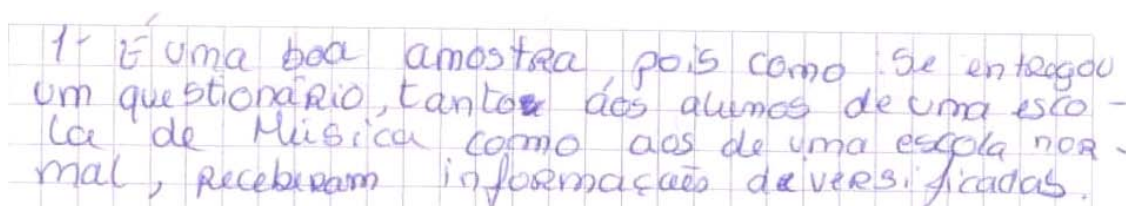 1- É uma boa amostra, pois como se entregou
um questionário, tanto aos alunos de uma esco-
la de Música como aos de uma escola nor-
mal, receberam informação deversificadas.